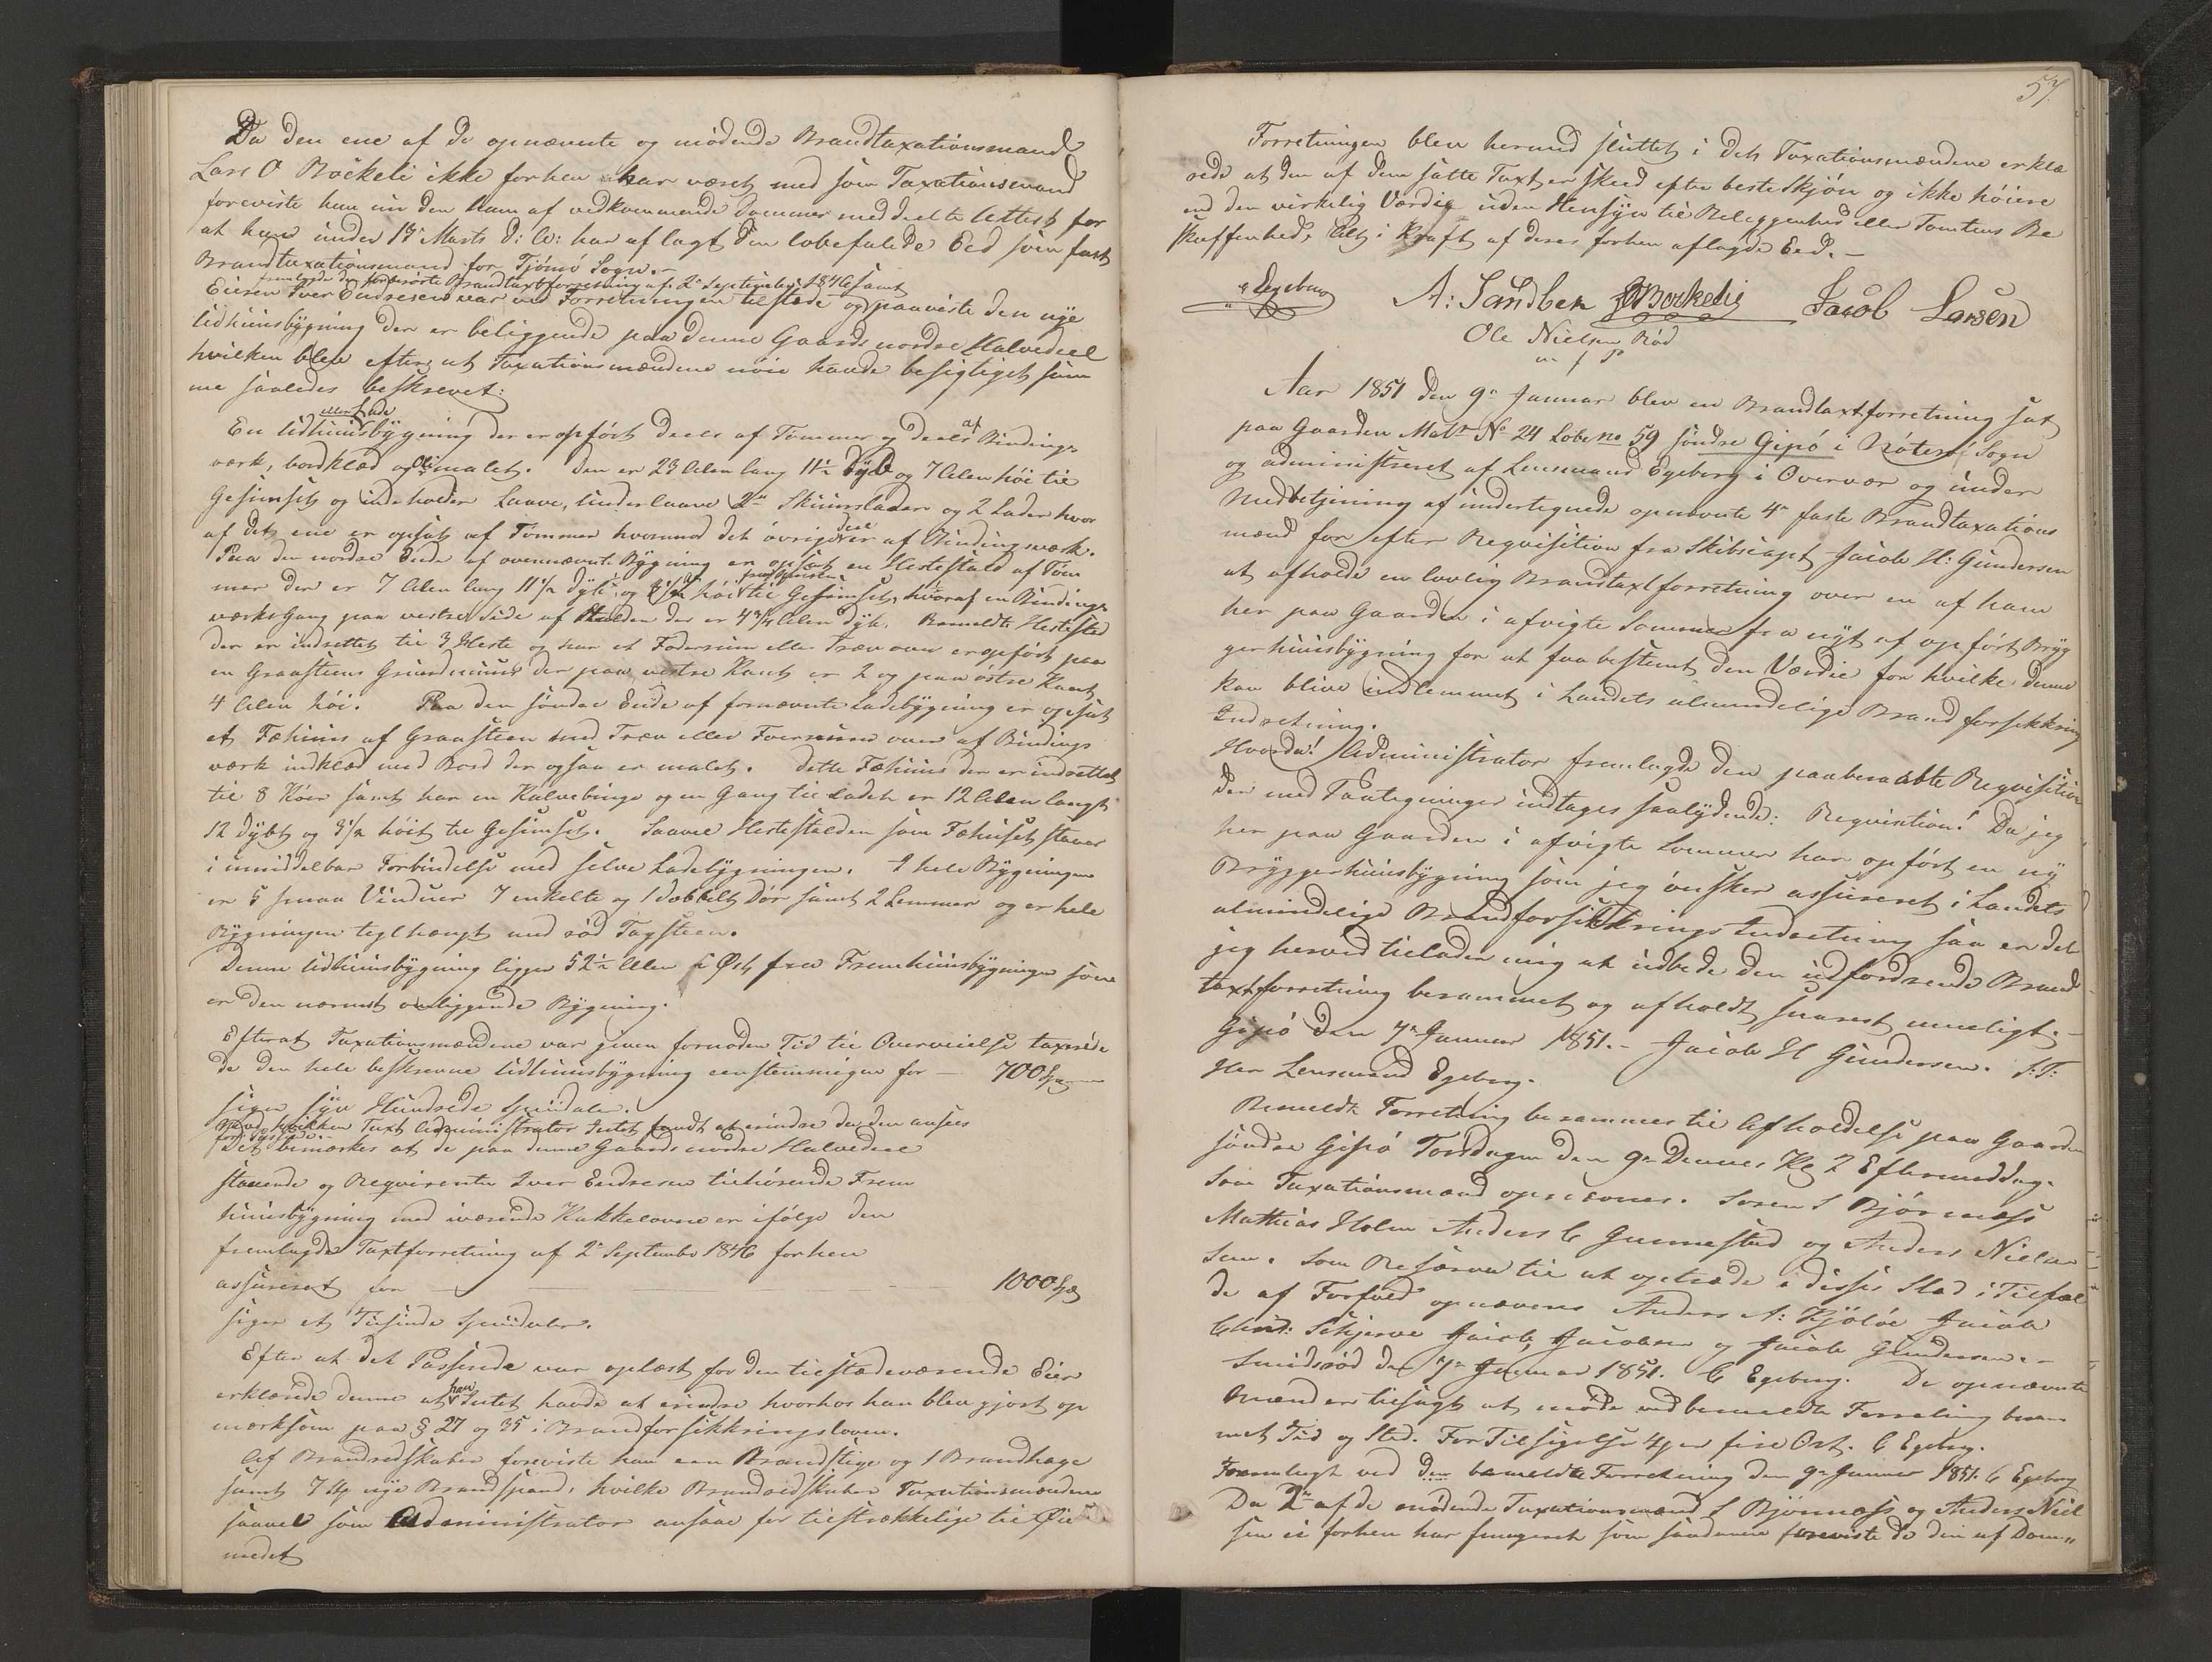 Da den ene af de opnævnte og mødende Brandtaxationsmænd
Lars O Bøckeli ikke forhen har været med som Taxationsmand
foreviste han nu den ham af vedkommende Dommer meddeelte Attest for
at han under 19de Marts d: A: har aflagt den lovbefalede Eed som fast
Brandtaxationsmand for Tjømø Sogn.-
fremlagde den forhen førte Brandtaxtforretning af 2den September 1846 samt
Eieren Iver Endresen var ved Forretningen tilstæde og paaviste den nye
Udhuusbygning der er beliggende paa denne Gaards nordre Halvedeel
hvilken blev efter at Taxationsmændene nøie havde besigtiget sam
me saaledes beskrevet:
eller Lade
En Udhuusbygning der er opført deels af Tømmer og deels af Bindings-
værk, bordklæd og malet. Den er 23 Alen lang 11½ dyb og 7 Alen høi til
Gesimset og indeholder Laave, Underlaave 2de Skuurslader og 2 Lader hvor
af det ene er opsat af Tømmer hvormod det øvrige er af Bindingsværk.
Paa den nordre Ende af ovennævnte Bygning er opsat en Hestestald af Tøm
mer der er 7 Alen lang 11½ dyb og høi til Gesimset, hvoraf en Bindings-
værks Gang paa vestre Side af Stalden der er 4¾ Alen dyb. Bemeldte Hestestald
der er indrettet til 3 Heste og har et Foderrum eller Træv over er opført paa
en Graasteens Grundmuur der paa vestre Kant er 2 og paa østre Kant
4 Alen høi. Paa den søndre Ende af fornævnte Ladebygning er opsat
et Fæhuus af Graasteen med Træv eller Foerrum over af Bindings
værk indklæd med Bord der ogsaa er malet. Dette Fæhuus der er indrettet
til 8 Køer samt har en Kalvebinge og en Gang til Ladet er 12 Alen langt
12 dybt og 3½ høit til Gesimset. Saavel Hestestalden som Fæhuset staaer
i umiddelbar Forbindelse med selve Ladebygningen. I hele Bygningen
er 5 smaa Vinduer 7 enkelte og 1 dobbelt Dør samt 2 Lemmer og er hele
Bygningen teglhængt med rød Tagsteen.
Denne Udhuusbygning ligger 52½ Alen i Øst fra Fremhuusbygningen som
er den nærmest omliggende Bygning.
Efterat Taxationsmændene var given fornøden Tid til Overveielse taxere
de den hele beskrevne Udhuusbygning eenstemmigen for — 700 Spd
siger syv Hundrede Speciedaler.
Mod hvilken Taxt Administrator Intet fandt at erindre da den ansees
Det bemærkes at de paa denne Gaards nordre Halvedeel
staaende og Requirenten Iver Endresen tilhørende Frem
huusbygning med iværende Kakkelovne er ifølge den
fremlagde Taxtforretning af 2den September 1846 forhen
assureret for — — — 1000 Spd
siger et Tusinde Speciedaler.
Efter at det Passerede var oplæst for den tilstædeværende Eier
erklærede denne at han Intet havde at erindre hvorhos han blev gjort op
mærksom paa § 27 og 35 i Brandforsikkringsloven.
Af Brandredskaber foreviste han een Brandstige og 1 Brandhage
samt 7 Stk nye Brandspand, hvilke Brandredskaber Taxationsmændene
saavel som Administrator ansaae for tilstrækkelige til Øie
medet
57.
Forretningen blev hermed sluttet i det Taxationsmændene erklæ
rede at den af dem satte Taxt er skeed efter beste Skjøn og ikke høiere
end den virkelig Værdie uden Hensyn til Beliggenhed eller Tomtens Be
skaffenhed, Alt i Kraft af deres forhen aflagde Eed.-
Egeberg A: Sandbek LOBøckelie Jacob Larsen
Ole Nielsen Rød
m f P
Aar 1851 den 9de Januar blev en Brandtaxtforretning sat
paa Gaarden Matr No 24 Løbe no 59 søndre Gipø i Nøterø Sogn
og administreret af Lensmand Egeberg i Overvær og under
Medbetjening af undertegnede opnævnte 4re faste Brandtaxations
mænd for efter Requisition fra Skibscapt Jacob H: Gundersen
at afholde en lovlig Brandtaxtforretning over en af ham
her paa Gaarden i afvigte Sommer fra nyt af opført Bryg
gerhuusbygning for at faa bestemt den Værdie for hvilke denne
kan blive indlemmet i Landets almindelige Brandforsikkrings
Indretning.
Hvorda! Administrator fremlagde den paaberaabte Requisition
der med Paategninger indtages saalydende: Requisition! Da jeg
her paa Gaarden i afvigte Sommer har opført en ny
Bryggerhuusbygning som jeg ønsker assureret i Landets
almindelige Brandforsikkrings Indretning saa er det
jeg herved tillader mig at udbede den udfordrende Brand
taxtforretning berammet og afholdt snarest mueligt.-
Gipø den 7de Januar 1851.- Jacob H Gundersen. S:T:
Herr Lensmand Egeberg.
Bemeldte Forretning berammes til Afholdelse paa Gaarden
søndre Gipø Torsdagen den 9de Dennes Kl 2 Eftermiddag.
Som Taxationsmænd opnævnes. Søren S Bjørnæss
Mathias Holm Anders C Gunnestad og Anders Niel
sen. Som Reserve til at optræde i disses Sted i Tilfæl
de af Forfald opnævnes Anders A: Kjøløe Jacob
Christ: Schjerve Jacob Jacobsen og Jacob Gundersen.-
Smidsrød den 7de Januar 1851. C Egeberg. De opnævnte
Mænd er tilsagt at møde ved bemeldte Forretning beram
met Tid og Sted. For Tilsigelse 4 er fire Ort. C Egeberg.
Fremlagt ved den bemeldte Forretning den 9de Januar 1851. C Egeberg
Da 2de af de mødende Taxationsmænd S Bjønnæss og Anders Niel
sen ei forhen har fungeret som saadanne foreviste de den af Dom„